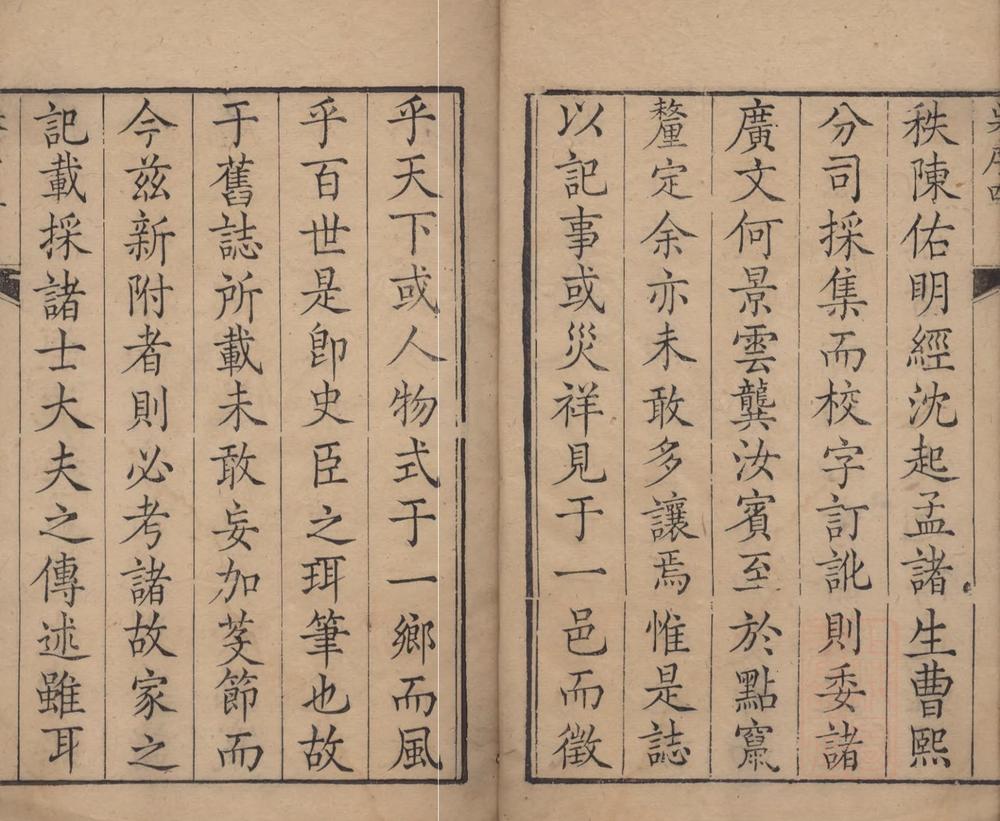 秩陳佑明經沈起孟諸生曹熙
分司採集而校字訂訛則委諸
廣文何景雲龔汝賓至於點竄
釐定余亦未敢多讓焉惟是誌
以記事或災祥見于一邑而徵
乎天下或人物式于一鄉而風
乎百世是卽史臣之珥筆也故
于舊誌所載未敢妄加芟節而
今茲新附者則必考諸故家之
記載採諸士大夫之傳述雖耳